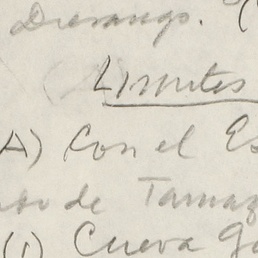 Durango. (
Limites
A) Con el Es
de Tamaz
(1) Cueva Ga